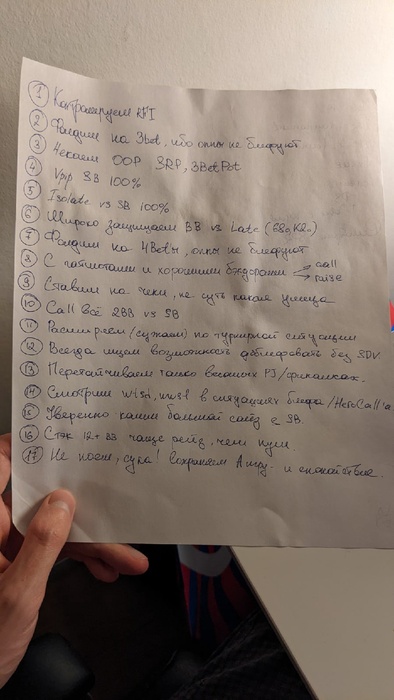 ① Контролируем RNI
② Фолдим на 3bet, ибо оппы не блефуют
③ Чекаем OOP SRP, 3BetPot
④ Vpip SB 100%
⑤ Isolate vs SB 100%
⑥ Широко защищаем BB vs Late
⑦ Фолдим на 4Bet'ы, оппы не блефуют
⑧ С гатшотами и хорошими бэкдорами call raise
⑨ Ставим на чеки, не суть какая улица
⑩ Call всё 2BB vs SB
⑪ Расширяем/(сужаем) по турнирной ситуации
⑫ Всегда ищем возможность без SDV
⑬ Перетайчиваем только в FJ/финалках.
⑭ Смотрим wtsd, wwsf в ситуациях блефа/HeroCall'а
⑮ Уверенно большой сайз с SB.
⑯ Стэк 12+ BB чаще рейз, чем пуш
⑰ Не ной, сука! Сохраняем A-игру и спокойствие.